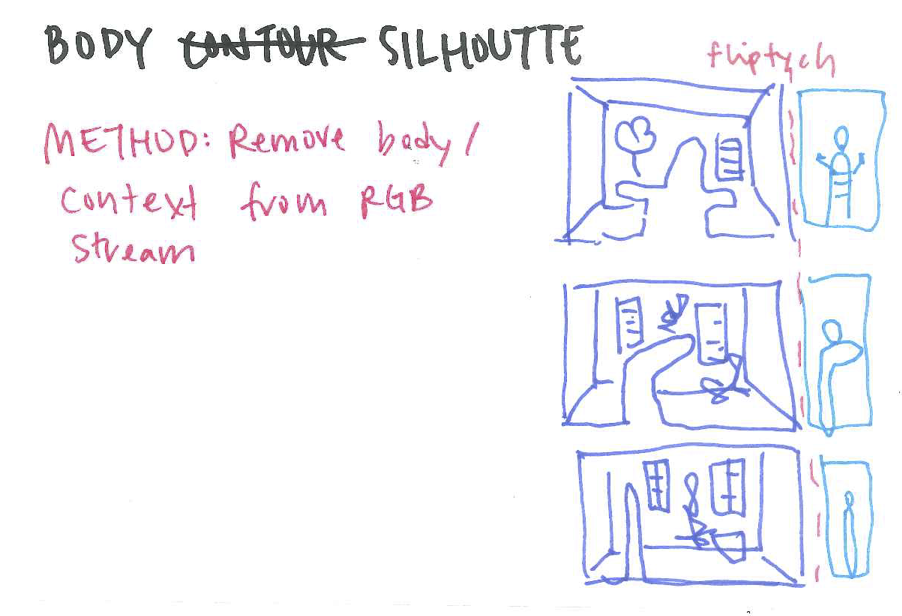 BODY CONTOUR SILHOUTTE
fliptych
METHOD: Remove body/
context from RGB
stream